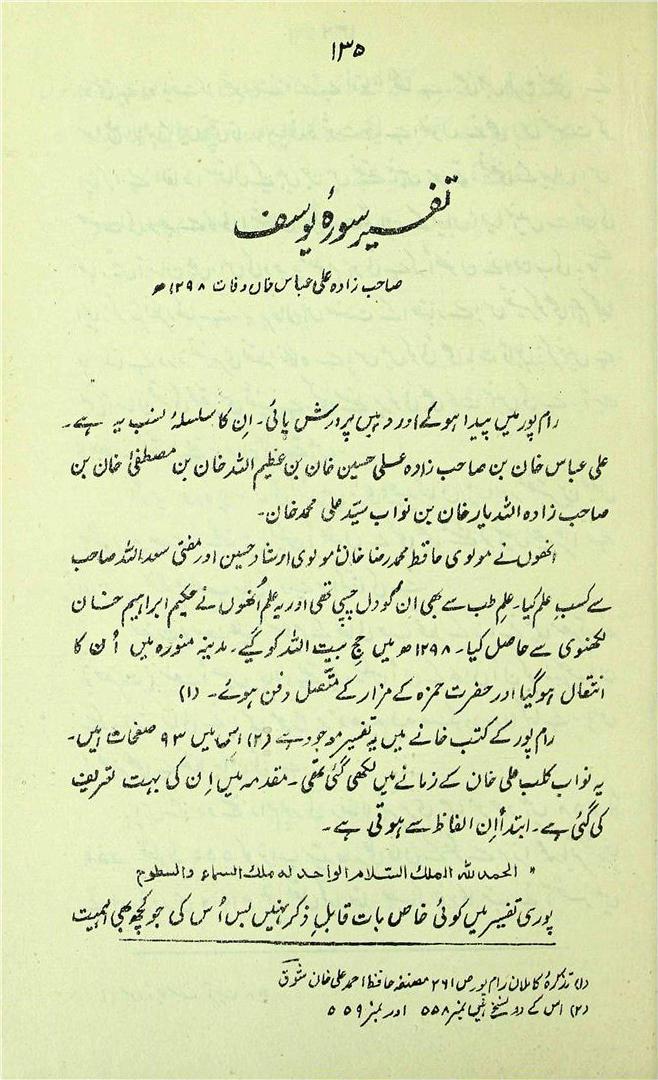 ۱۳۵
تفسیر سورۂ یوسف
صاحب زادہ علی عباس خاں وفات ۱۲۹۸ھ
رام پور میں پیدا ہوئے اور وہیں پرورش پائی۔ ان کا سلسلۂ نسب یہ ہے۔
علی عباس خان بن صاحب زادہ علی حسین خان بن عظیم اللہ خان بن مصطفیٰ خان بن
صاحب زادہ اللہ یار خان بن نواب سیّد علی محمد خان۔
انھوں نے مولوی حافظ محمد رضا خاں، مولوی ارشاد حسین اور مفتی سعد اللہ صاحب
سے کسبِ علم کیا۔ علمِ طب سے بھی ان کو دل چسپی تھی اور یہ علم اُنھوں نے حکیم ابراہیم خان
لکھنوی سے حاصل کیا۔ ۱۲۹۸ھ میں حجِ بیت اللہ کو گیے۔ مدینہ منورہ میں اُن کا
انتقال ہوگیا اور حضرت حمزہ کے مزار کے متصل دفن ہوئے۔ (۱)
رام پور کے کتب خانے میں یہ تفسیر موجود ہے (۲) اس میں ۹۳ صفحات ہیں۔
یہ نواب کلب علی خان کے زمانے میں لکھی گئی تھی۔ مقدمہ میں ان کی بہت تعریف
کی گئی ہے۔ ابتدأ ان الفاظ سے ہوتی ہے۔
" الحمد للہ الملک السلام الواحد لہ ملک السماء والسطوح
پوری تفسیر میں کوئی خاص بات قابلِ ذکر نہیں بس اُس کی جو کچھ بھی اہمیت
(۱) تذکرۂ کاملان رام پور ص ۲۶۱ مصنفہ حافظ احمد علی خان شوقؔ
(۲) اس کے دو نسخے ہیں نمبر ۵۵۸ اور نمبر ۵۵۹